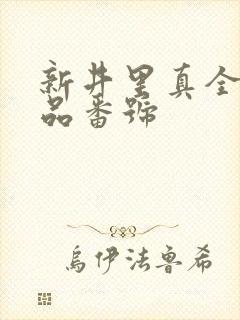 新井里真全
品番號
烏伊法魯希